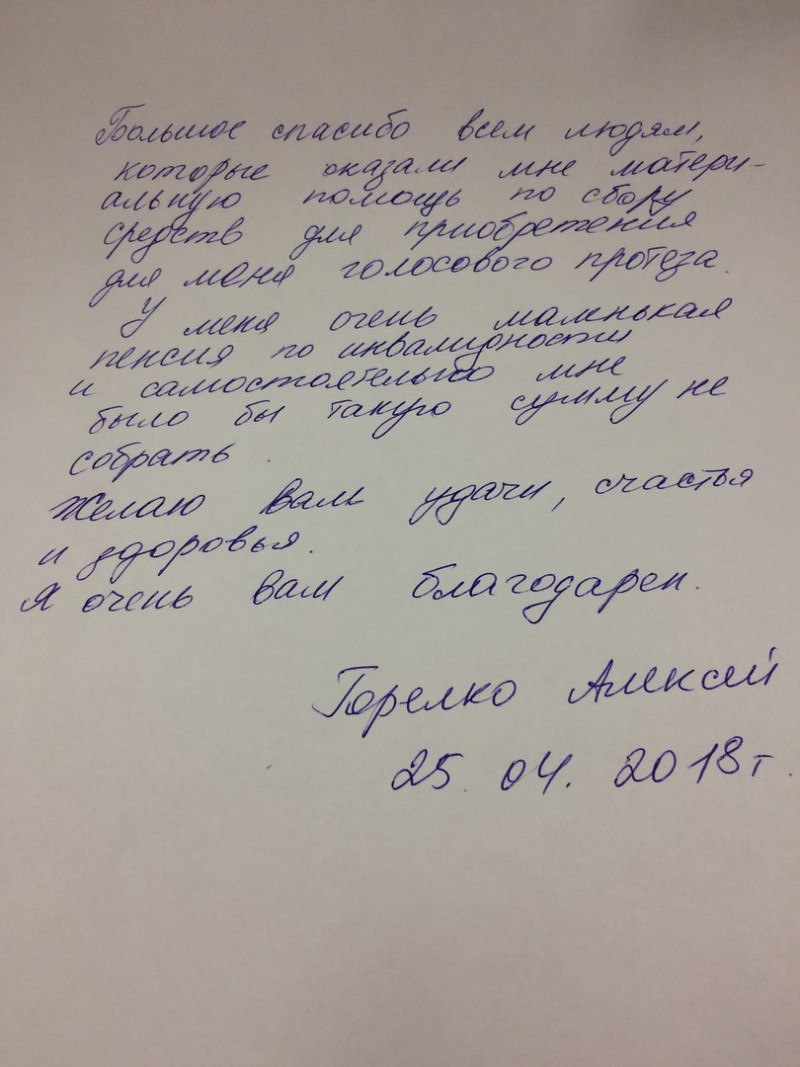 Большое спасибо всем людям,
которые оказали мне матери-
альную помощь по сбору
средств для приобретения
для меня голосового протеза.
У меня очень маленькая
пенсия по инвалидности
и самостоятельно мне
было бы такую сумму не
собрать.
Желаю вам удачи, счастья
и здоровья.
Я очень вам благодарен.
Горелко Алексей
25.04.2018г.